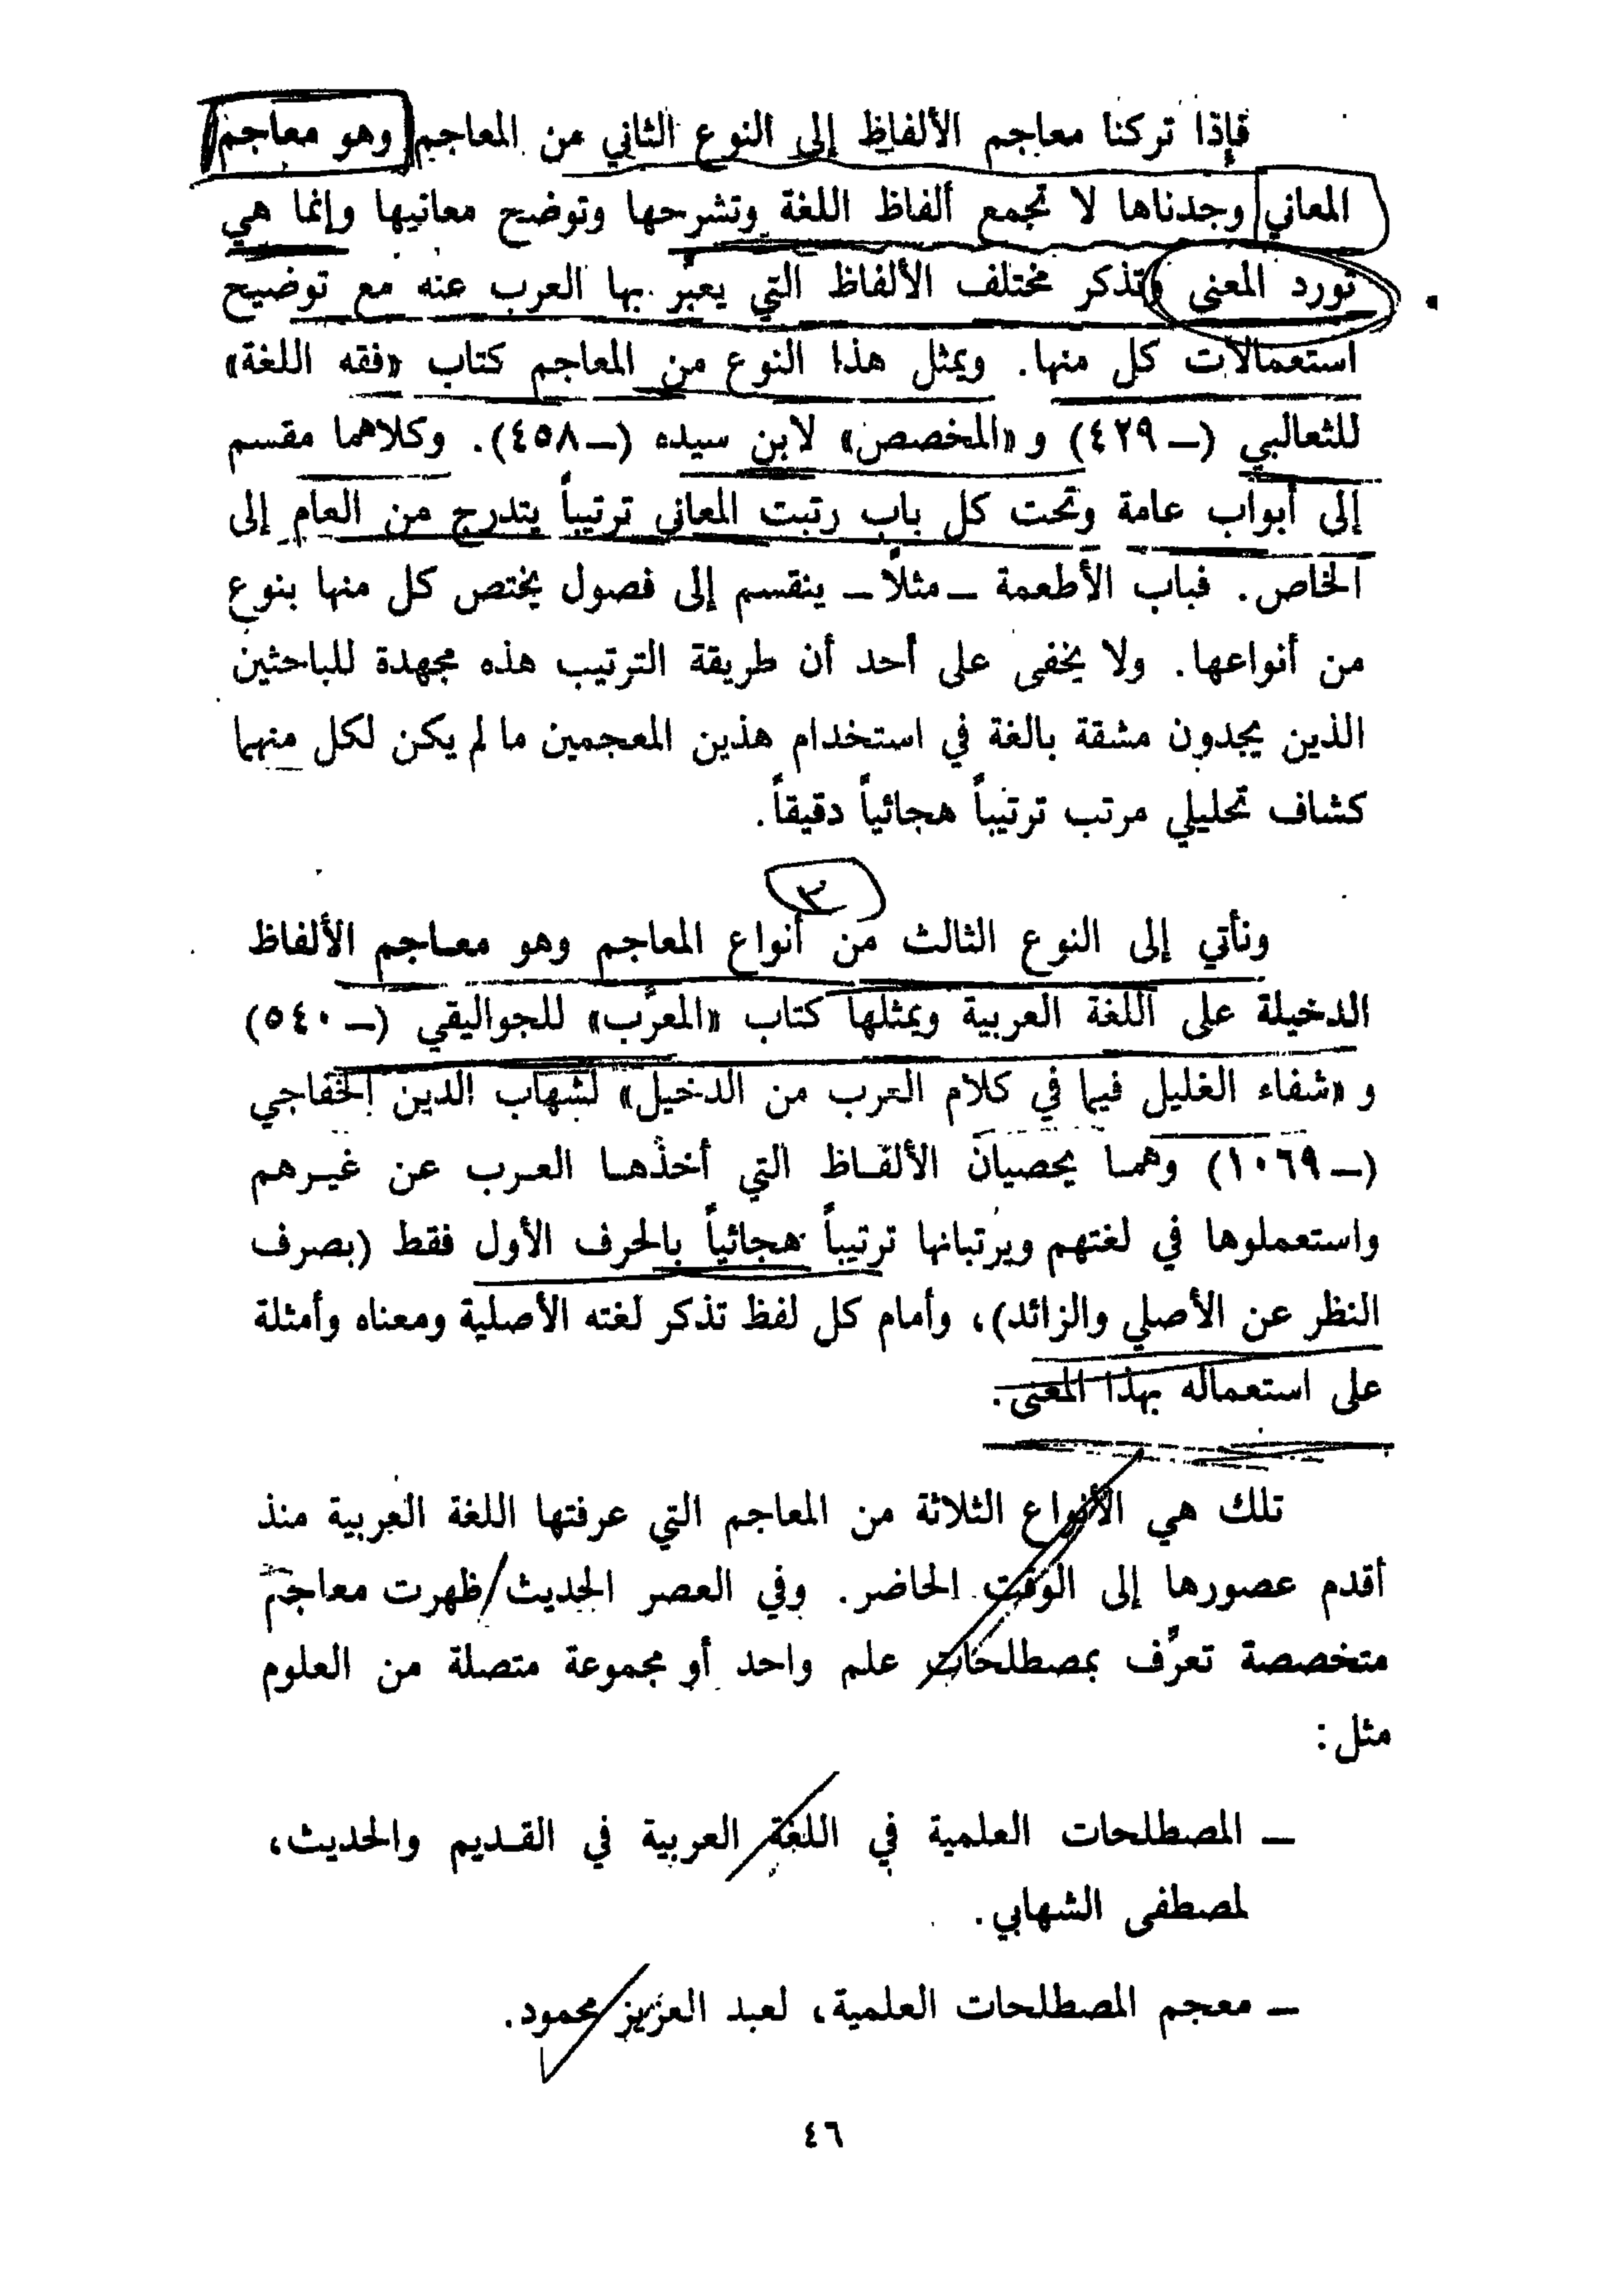 فإذا تركنا معاجم الألفاظ إلى النوع الثاني من المعاجم وهو معاجم
المعاني وجدناها لا تجمع ألفاظ اللغة وتشرحها وتوضح معانيها وإنما هي
تورد المعنى وتذكر مختلف الألفاظ التي يعبّر بها العرب عنه مع توضيح
استعمالات كل منها. ويمثل هذا النوع من المعاجم كتاب «فقه اللغة»
للثعالبي (ــ ٤٢٩) و «المخصص» لابن سيده (ــ ٤٥٨). وكلاهما مقسم
إلى أبواب عامة وتحت كل باب رتبت المعاني ترتيباً يتدرج من العام إلى
الخاص. فباب الأطعمة ــ مثلاً ــ ينقسم إلى فصول يختص كل منها بنوع
من أنواعها. ولا يخفى على أحد أن طريقة الترتيب هذه مجهدة للباحثين
الذين يجدون مشقة بالغة في استخدام هذين المعجمين ما لم يكن لكل منهما
كشاف تحليلي مرتب ترتيباً هجائياً دقيقاً.
٣
ونأتي إلى النوع الثالث من أنواع المعاجم وهو معاجم الألفاظ
الدخيلة على اللغة العربية ويمثلها كتاب «المعرّب» للجواليقي (ــ ٥٤٠)
و «شفاء الغليل فيما في كلام العرب من الدخيل» لشهاب الدين الخفاجي
(ــ ١٠٦٩) وهما يحصيان الألفاظ التي أخذها العرب عن غيرهم
واستعملوها في لغتهم ويرتبانها ترتيباً هجائياً بالحرف الأول فقط (بصرف
النظر عن الأصلي والزائد)، وأمام كل لفظ تذكر لغته الأصلية ومعناه وأمثلة
على استعماله بهذا المعنى.
تلك هي الأنواع الثلاثة من المعاجم التي عرفتها اللغة العربية منذ
أقدم عصورها إلى الوقت الحاضر. وفي العصر الحديث ظهرت معاجم
متخصصة تعرّف بمصطلحات علم واحد أو مجموعة متصلة من العلوم
مثل:
ــ المصطلحات العلمية في اللغة العربية في القديم والحديث،
لمصطفى الشهابي.
ــ معجم المصطلحات العلمية، لعبد العزيز محمود.
٤٦